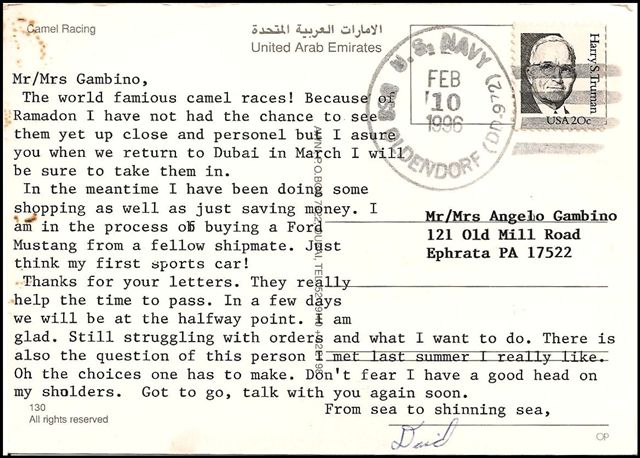 Camel Racing
الامارات العربية المتحدة
United Arab Emirates
U.S. NAVY
FEB
10
1996
OLDENDORF (DD-972)
Harry S. Truman
USA 20c
Mr/Mrs Gambino,
The world famous camel races! Because of
Ramadon I have not had the chance to see
them yet up close and personel but I asure
you when we return to Dubai in March I will
be sure to take them in.
In the meantime I have been doing some
shopping as well as just saving money. I
am in the process of buying a Ford
Mustang from a fellow shipmate. Just
think my first sports car!
Thanks for your letters. They really
help the time to pass. In a few days
we will be at the halfway point. I am
glad. Still struggling with orders and what I want to do. There is
also the question of this person I met last summer I really like.
Oh the choices one has to make. Don't fear I have a good head on
my sholders. Got to go, talk with you again soon.
From sea to shinning sea,
Mr/Mrs Angelo Gambino
121 Old Mill Road
Ephrata PA 17522
130
All rights reserved
CP